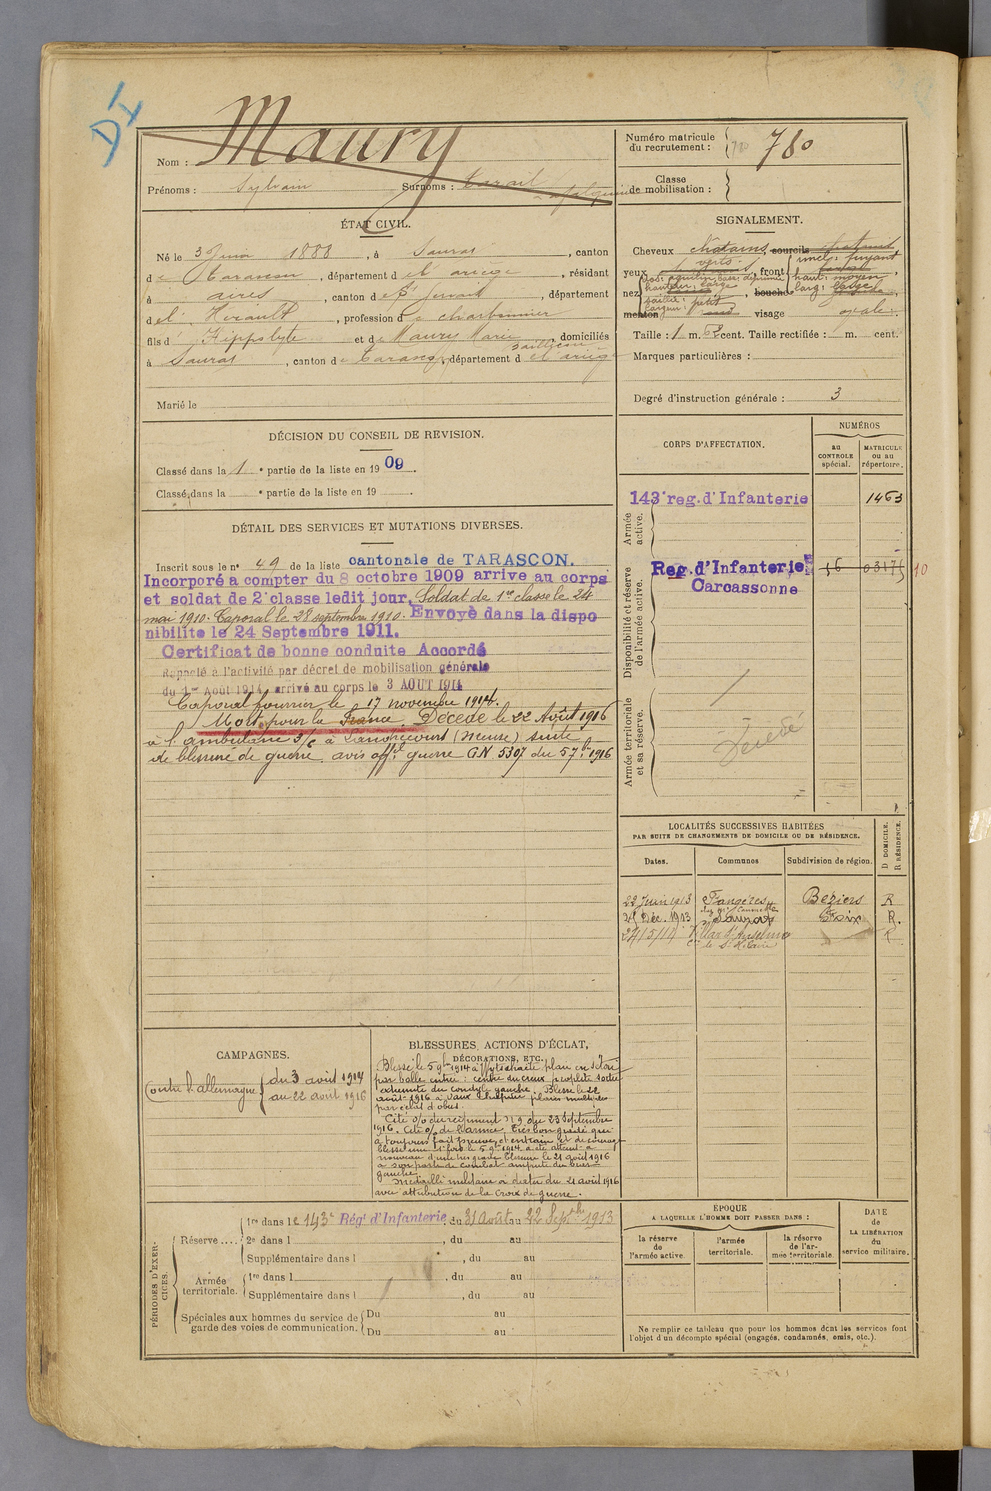 DI
Nom : Maury
Prénoms : Sylvain Surnoms :
Numéro matricule du recrutement : 780
Classe de mobilisation :
ÉTAT CIVIL.
Né le 3 Juin 1888, à Saurat, canton
de Tarascon, département de l'ariège, résidant
à aires, canton de St Gervais, département
de l'Hérault, profession de charbonnier
fils d Hippolyte et de Maury Marie, domiciliés
à Saurat, canton de Tarascon, département de l'ariège
Marié le
SIGNALEMENT.
Cheveux chatains, sourcils chatains
yeux verts, front incl: fuyant
haut: moyen
larg: large
nez dos: base:
hauteur: large
saillie: petit
largeur:
bouche
menton rond visage ovale.
Taille : 1 m. cent. Taille rectifiée : 1 m. cent.
Marques particulières :
Degré d'instruction générale : 3
DÉCISION DU CONSEIL DE REVISION.
Classé dans la 1e partie de la liste en 1909.
Classé dans la e partie de la liste en 19 .
DÉTAIL DES SERVICES ET MUTATIONS DIVERSES.
Inscrit sous le n° 49 de la liste cantonale de TARASCON.
Incorporé a compter du 8 octobre 1909 arrive au corps
et soldat de 2e classe ledit jour. Soldat de 1re classe le 24
mai 1910. Caporal le 28 septembre 1910. Envoyè dans la dispo
nibilite le 24 Septembre 1911.
Certificat de bonne conduite Accordé
Rappelé à l'activité par décret de mobilisation générale
du 1er Août 1914, arrivé au corps le 3 AOUT 1914
Caporal fourrier le 17 novembre 1914.
Mort pour la France. Décédé le 22 Août 1916
à l'ambulance 3/6 à Landrecourt (Meuse) suite
de blessure de guerre, avis offel guerre GN 5307 du 5 7bre 1916
CORPS D'AFFECTATION.
NUMÉROS
au CONTROLE spécial.
MATRICULE ou au répertoire.
Armée active.
143e reg. d'Infanterie 1463
Disponibilité et réserve de l'armée active.
Reg. d'Infanterie
Carcassonne
Armée territoriale et sa réserve.
Décédé
LOCALITÉS SUCCESSIVES HABITÉES
PAR SUITE DE CHANGEMENTS DE DOMICILE OU DE RÉSIDENCE.
Dates. Communes Subdivision de région. D DOMICILE. R RÉSIDENCE.
22 Juin 1913 Béziers R
Déc. 1913 Saurat Foix R.
24/5/14 R
CAMPAGNES.
Contre l'allemagne du 3 août 1914
au 22 août 1916
BLESSURES, ACTIONS D'ÉCLAT,
DÉCORATIONS, ETC.
Blessé le 5 9bre 1914 à Wytschaete
par balle entrée : centre du creux poplité sortie
extremité du condyle gauche. Blessé le 22
août 1916 à Vaux Chapitre plaies multiples
par éclat d'obus.
Cité o/ du régiment n° 9 du 23 Septembre
1916. Cité o/ de l'armée. Très bon gradé qui
a toujours fait preuve d'entrain et de courage
blessé une 1re fois le 5 9bre 1914 a été atteint à
nouveau d'une très grave blessure le 21 août 1916
à son poste de combat amputé du bras
gauche.
Médaille militaire à dater du 21 août 1916
avec attribution de la Croix de guerre.
PÉRIODES D'EXERCICES.
Réserve.... 1re dans le 143e Rég. d'Infanterie, du 31 Août au 22 Septbre 1913
2e dans l , du au
Supplémentaire dans l , du au
Armée territoriale. 1re dans l , du au
Supplémentaire dans l , du au
Spéciales aux hommes du service de garde des voies de communication. Du au
Du au
ÉPOQUE
A LAQUELLE L'HOMME DOIT PASSER DANS :
la réserve de l'armée active.
l'armée territoriale.
la réserve de l'armée territoriale.
DATE de LA LIBÉRATION du service militaire.
Ne remplir ce tableau que pour les hommes dont les services font
l'objet d'un décompte spécial (engagés, condamnés, omis, etc.).